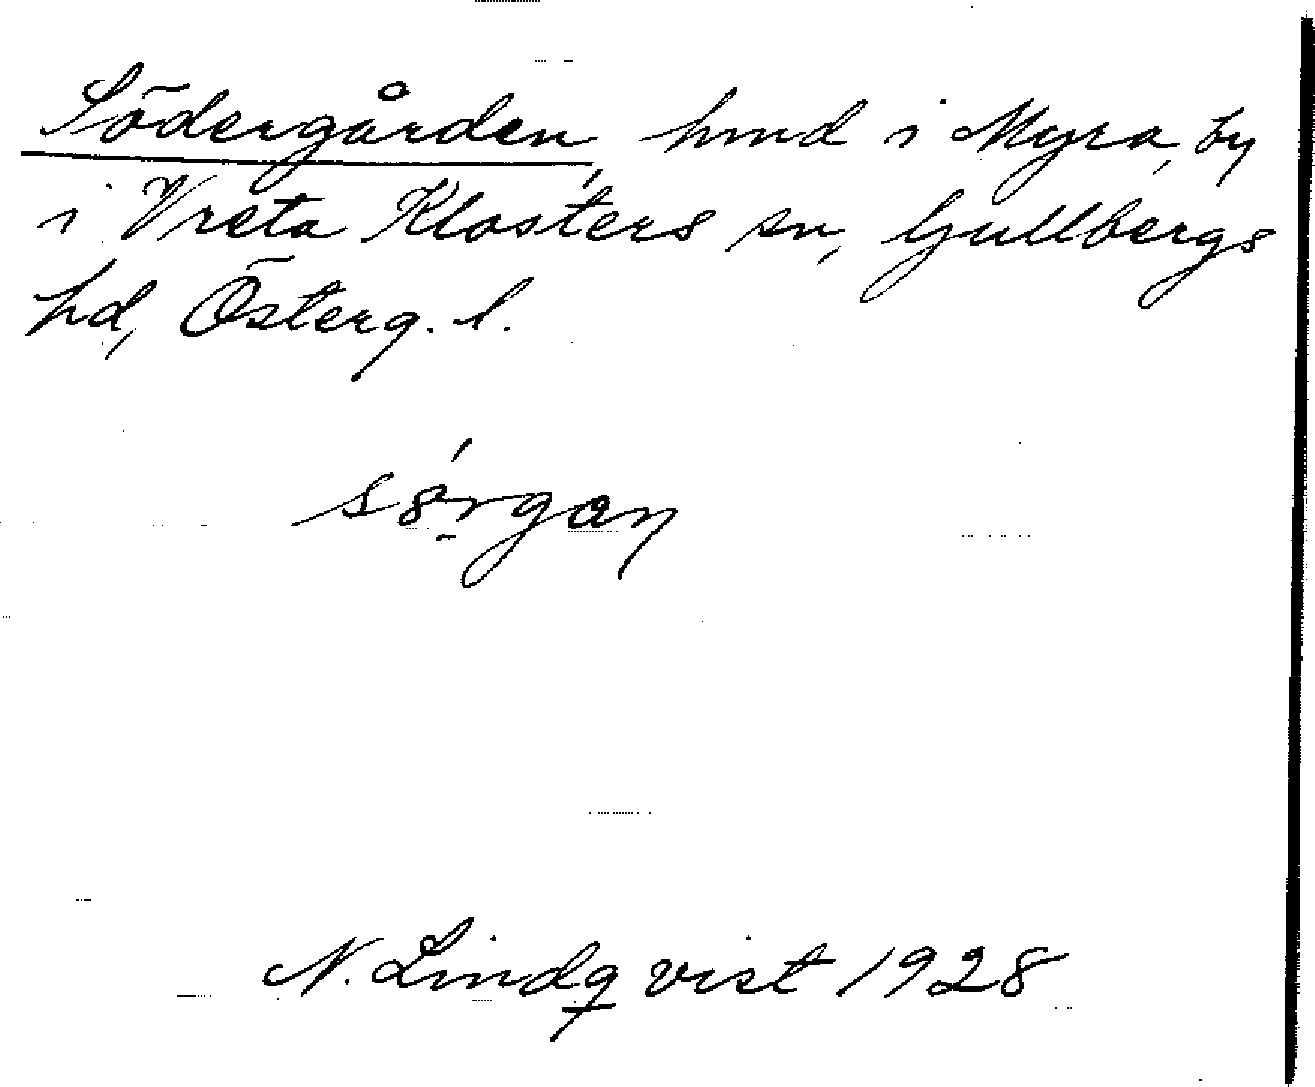 Södergården, hmd i Myra, by
i Vreta Klosters sn, Gullbergs
hd, Österg. l.
N. Lindqvist 1928